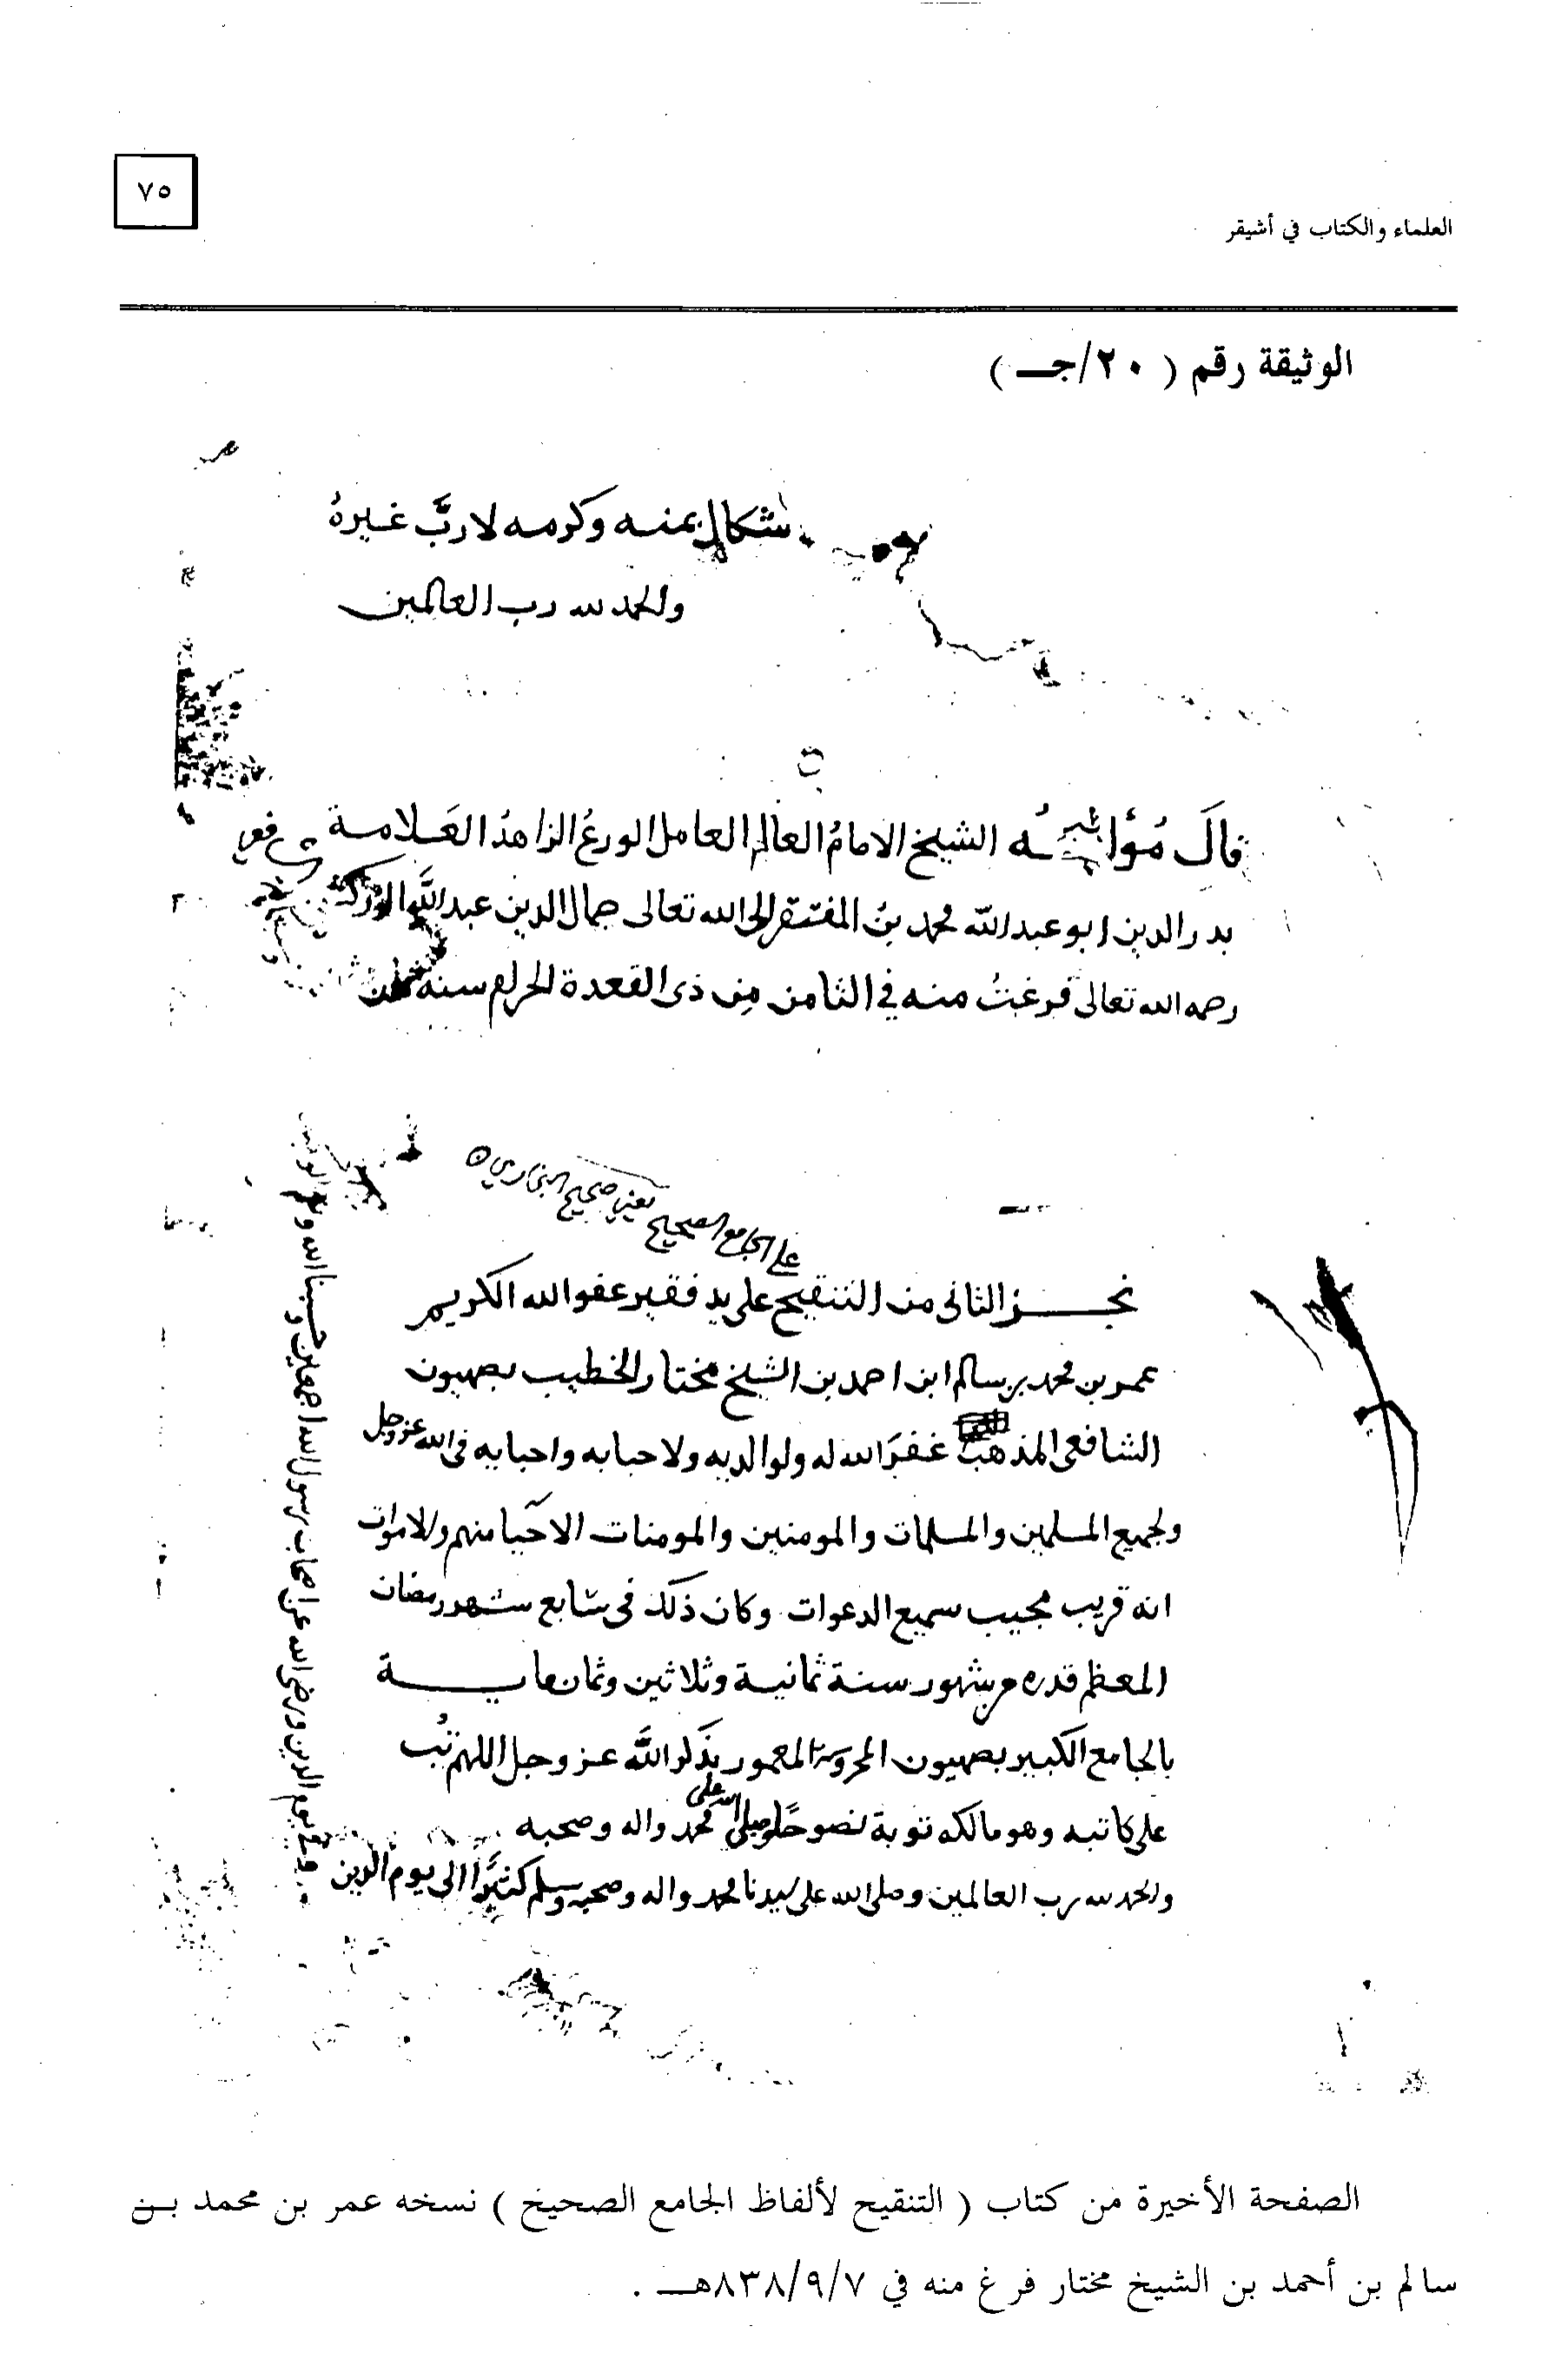 ٧٥
العلماء والكتاب في أشيقر
الوثيقة رقم ( ٢٠/جـ )
شكال بمنه وكرمه لا ربَّ غيرهُ
والحمد لله رب العالمين
قالَ مُؤلفه الشيخ الامامُ العالم العامل الورعُ الزاهدُ العَلامة
بدر الدين ابو عبد الله محمد بنُ المفتقر الى الله تعالى جمال الدين عبد اللَّه الزركشي
رحمه الله تعالى فرغتُ منه في الثامن مِن ذى القعدة الحرام سنه
على الجامع الصحيح يعني صحيح البخاري
نجز الثانى من التنقيح على يد فقير عفو الله الكريم
عمر بن محمد بن سالم ابن احمد بن الشيخ مختار الخطيب بصهيون
الشافعى المذهب غفرَ الله له ولوالديه ولاحبابه واحبابه فى الله عز وجل
ولجميع المسلمين والمسلمات والمومنين والمومنات الاحيا منهم والاموات
انه قريب مجيب سميع الدعوات وكان ذلك فى سابع شهر رمضان
المعظم قدره من شهور سنة ثمانية وثلاثين وثمان ماية
بالجامع الكبير بصهيون المحروسة المعمور بذكر اللَّه عز وجل اللهم تُب
على كاتبه وهو مالكه توبة نصوحًا وصلى الله على محمد واله وصحبه
والحمد لله رب العالمين وصلى الله على سيدنا محمد واله وصحبه وسلم كثيرًا الى يوم الدين
يوم الدين ورضى الله عن اصحاب رسول الله اجمعين وحسبنا الله ونعم الوكيل
الصفحة الأخيرة من كتاب ( التنقيح لألفاظ الجامع الصحيح ) نسخه عمر بن محمد بـن
سالم بن أحمد بن الشيخ مختار فرغ منه في ٨٣٨/٩/٧هـ .